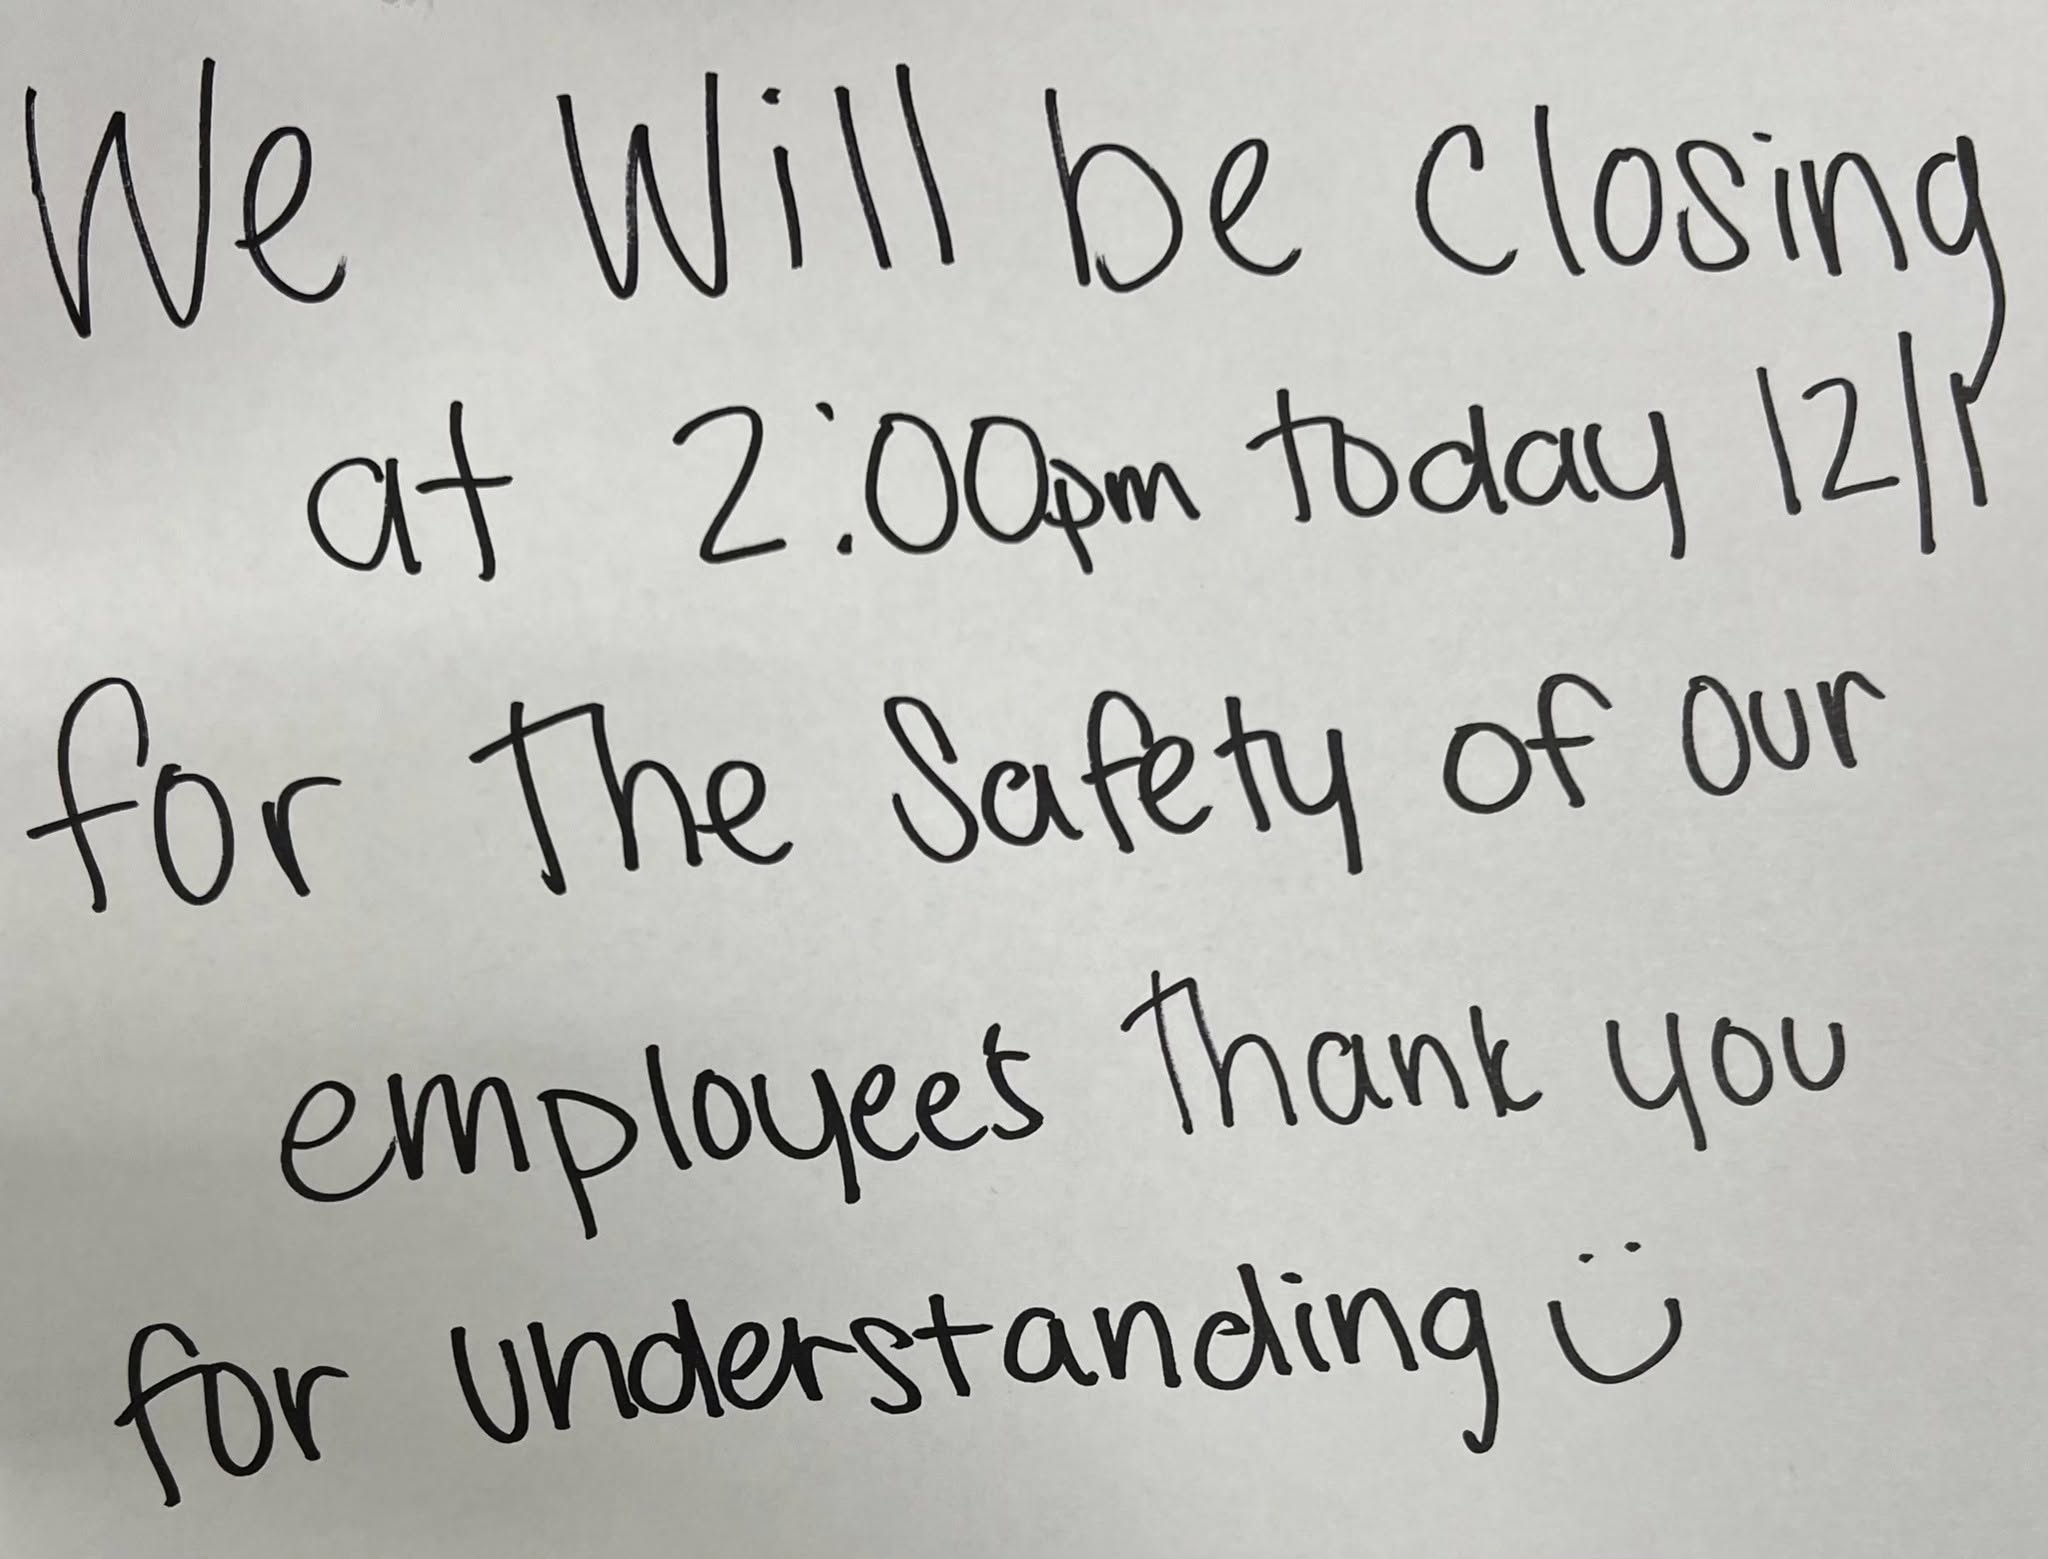 We Will be closing
at 2:00pm today 12/1
for The Safety of our
employee's Thank you
for understanding